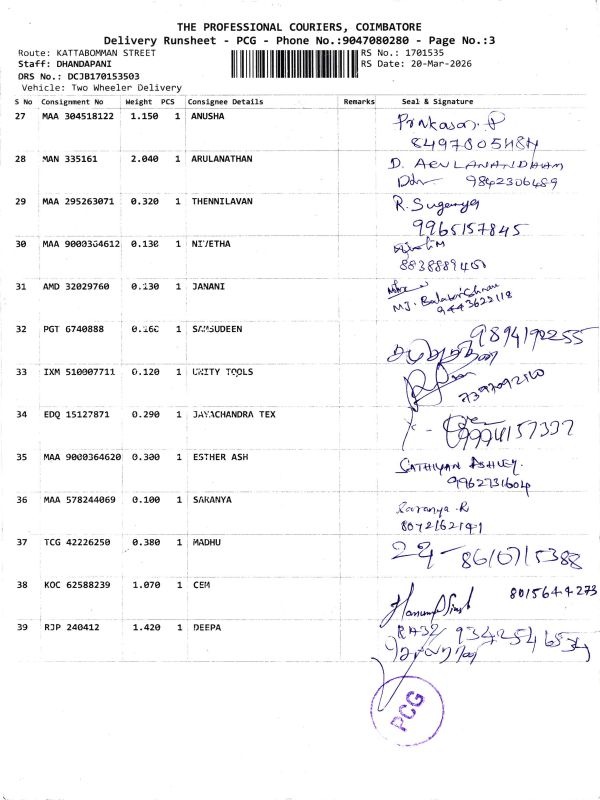 THE PROFESSIONAL COURIERS, COIMBATORE
Delivery Runsheet - PCG - Phone No.:9047080280 - Page No.:3
Route: KATTABOMMAN STREET
RS No.: 1701535
Staff: DHANDAPANI
RS Date: 20-Mar-2026
DRS No.: DCJB170153503
Vehicle: Two Wheeler Delivery
S No Consignment No Weight PCS Consignee Details Remarks Seal & Signature
27 MAA 304518122 1.150 1 ANUSHA
28 MAN 335161 2.040 1 ARULANATHAN
D. ARULANANDHAM
9842306489
29 MAA 295263071 0.320 1 THENNILAVAN
R. Suganya
9965157845
30 MAA 9000364612 0.130 1 NIVETHA
31 AMD 32029760 0.130 1 JANANI
MJ. Balakrishnan
9443622118
32 PGT 6740888 0.160 1 SAMSUDEEN
9894192255
33 IXM 510007711 0.120 1 UNITY TOOLS
34 EDQ 15127871 0.290 1 JAYACHANDRA TEX
35 MAA 9000364620 0.300 1 ESTHER ASH
SATHIYAN ASHLEY.
9962731604
36 MAA 578244069 0.100 1 SARANYA
Saranya R
8072162141
37 TCG 42226250 0.380 1 MADHU
8610715388
38 KOC 62588239 1.070 1 CEM
8015644273
39 RJP 240412 1.420 1 DEEPA
PCG